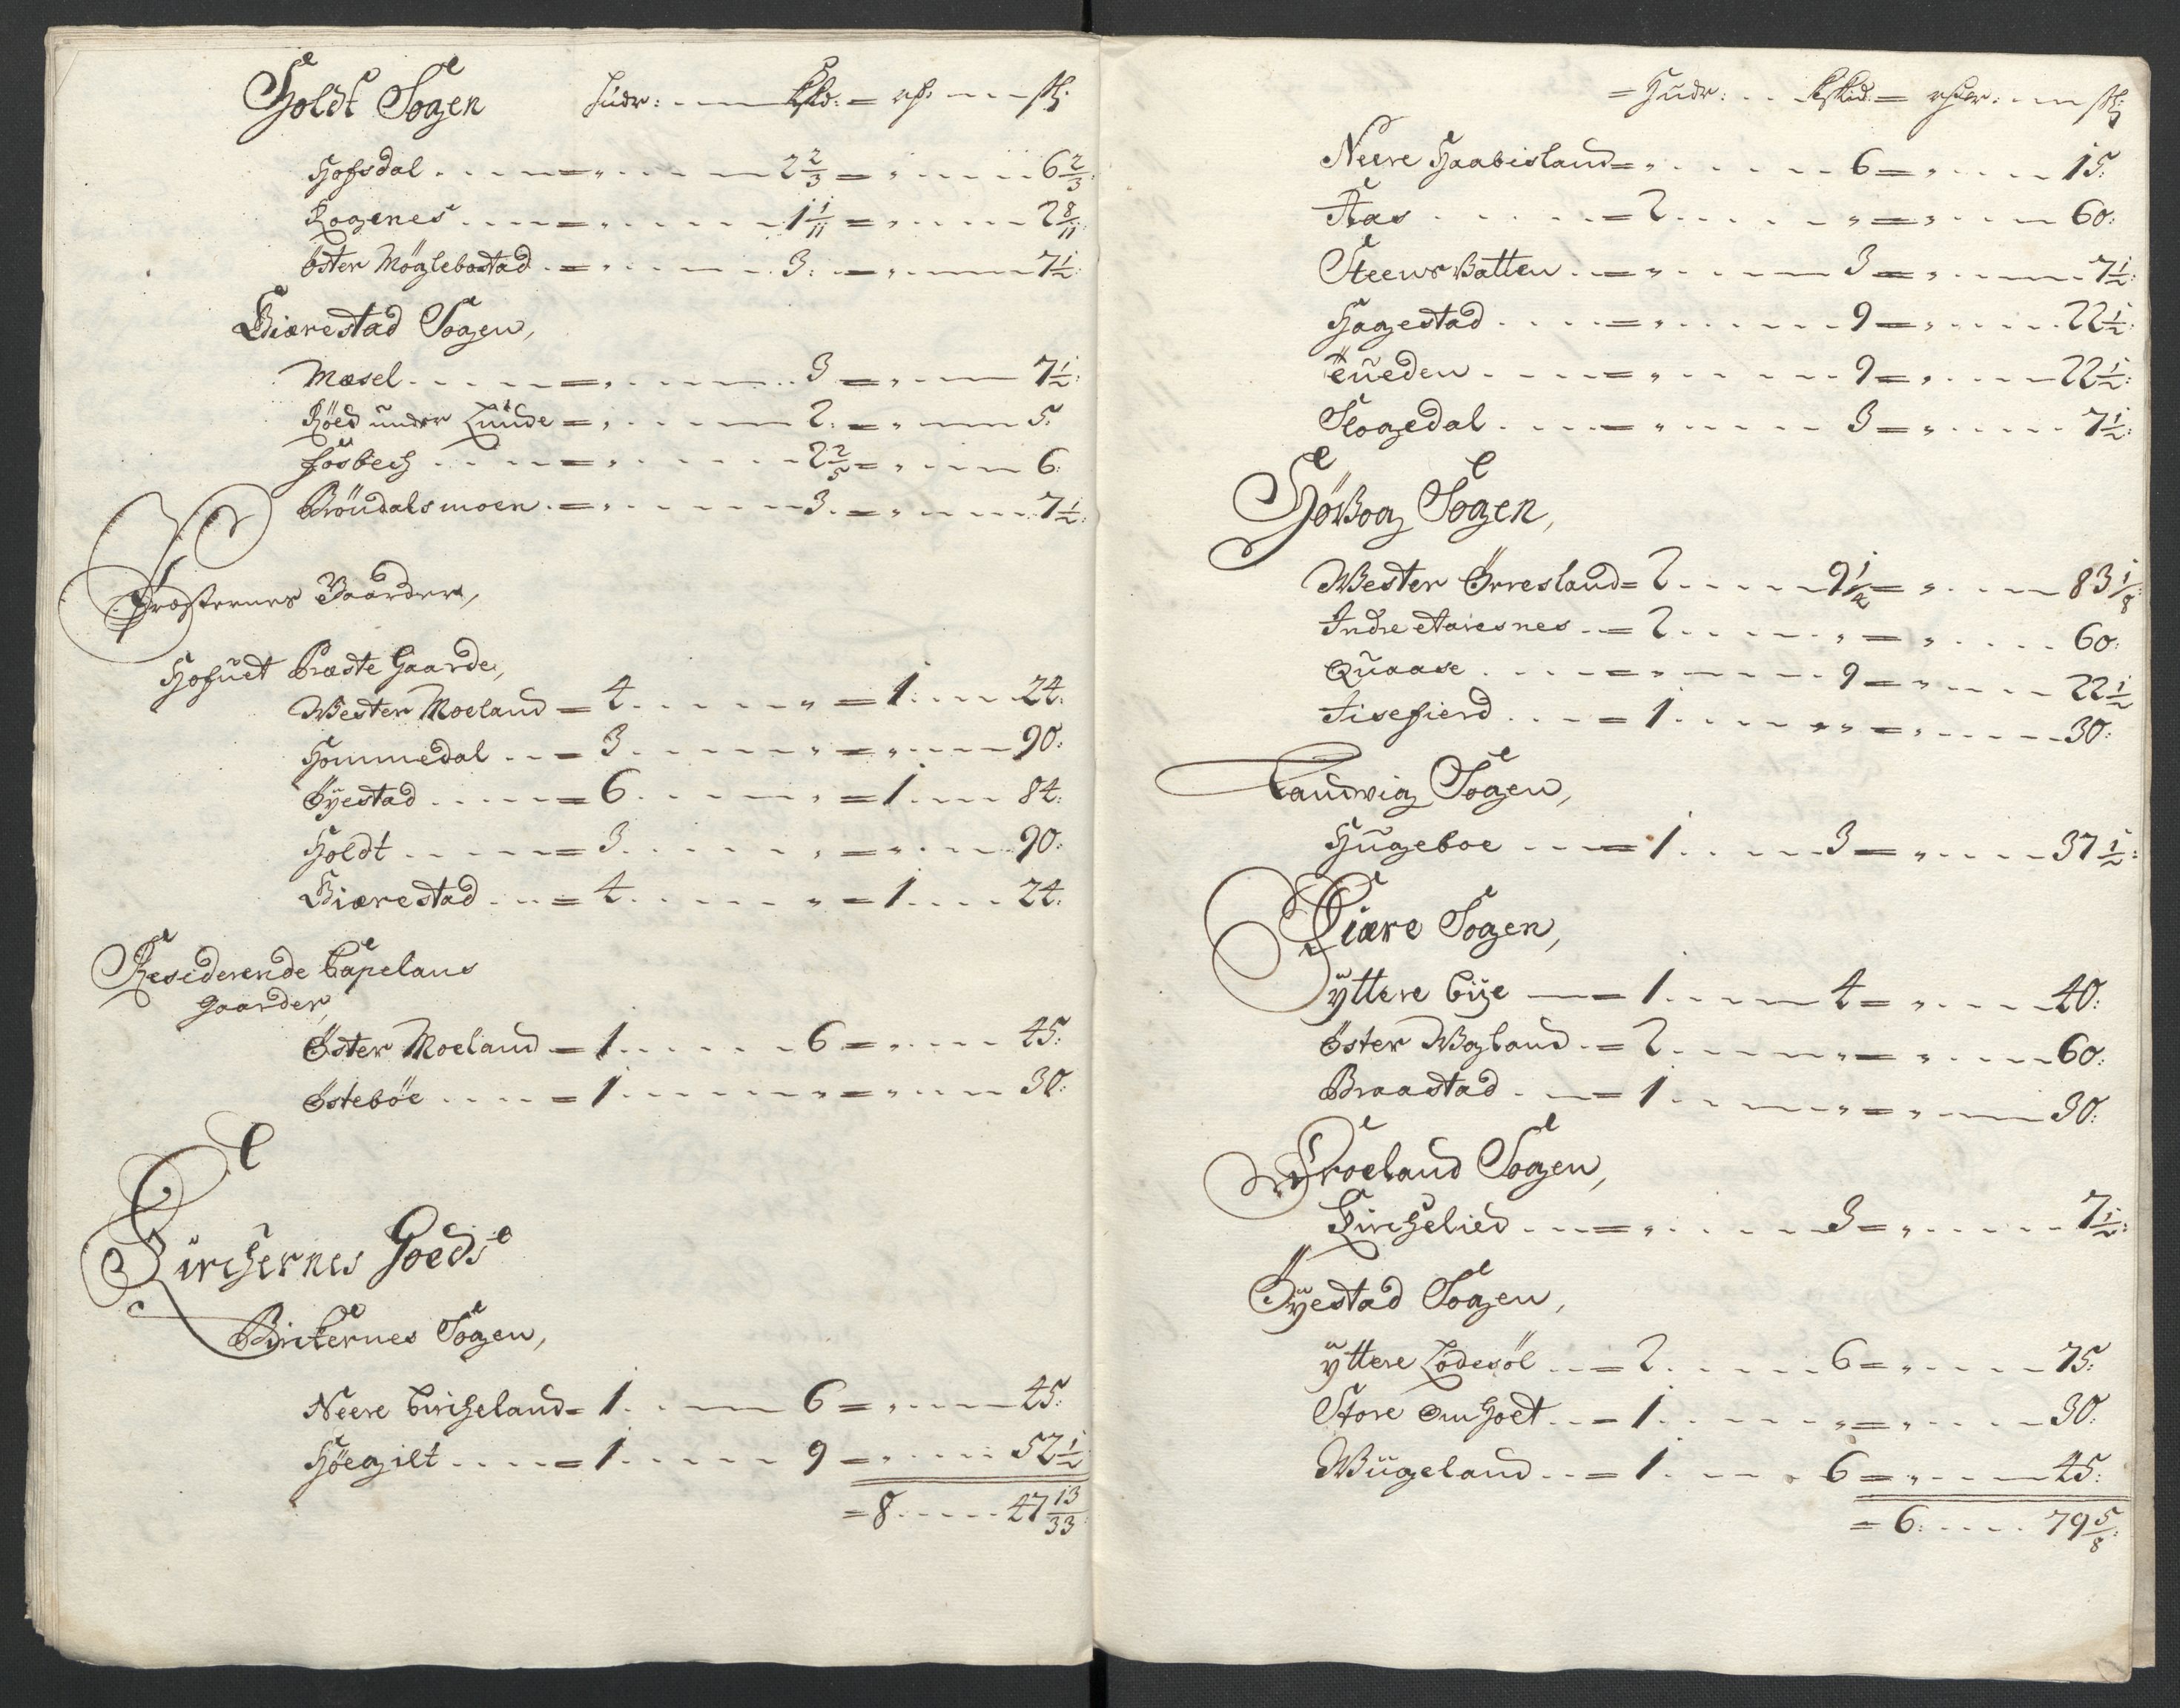 Holdt Sogen Hudr: kskd: rdr: sk:
Hofsdal = „ 2 2/3 = „ 6 2/3:
Lognes = „ 1 1/11 = „ 2 8/11:
Öster Möglebostad = „ 3: = „ 7 1/2:
Giærestad Sogen,
Mæsel = „ 3 = „ 7 1/2:
Röed under Lunde = „ 2: = „ 5:
fosbech = „ 2 2/5 = „ 6:
Bröndalsmoen = „ 3. = „ 7 1/2:
Præsternes Gaarder,
Hofuet Præste Gaarde,
Wester Moeland = 4 „ = 1 24:
Hommedal = 3 „ = „ 90:
Öyestad = 6 „ = 1 84:
Holdt = 3 „ = „ 90:
Giærestad = 4 „ = 1 24:
Residerende Capelans
Gaarder,
Öster Moeland = 1 6 = „ 45:
Östeböe = 1 „ = „ 30:
Kirchernes Goeds
Birckernes Sogen,
Neere Bircheland = 1 6 = „ 45:
Höegilt = 1 9 = „ 52 1/2
= 8 47 13/33:
= Hudr: kskid = rdr: sk:
Neere Haabisland = „ 6 = „ 15:
Aas = 2 „ = „ 60:
Steensvatten = „ 3 = „ 7 1/2:
Hagestad = „ 9 = „ 22 1/2:
„ 9 = „ 22 1/2:
Slogedal = „ 3 = „ 7 1/2:
HöVog Sogen,
Wester Örresland = 2 9 1/4 = „ 83 1/8:
Indre Aaresnes = 2 „ = „ 60:
Quaase = „ 9 = „ 22 1/2
Tisefierd = 1 „ = „ 30:
Landvig Sogen,
Hugeboe = 1 3 = „ 37 1/2:
Fiære Sogen,
yttere Bije = 1 4 = „ 40:
Öster Wogland = 2 „ = „ 60:
Braastad = 1 „ = „ 30:
Froeland Sogen,
Kirchelied = „ 3 = „ 7 1/2:
Öyestad Sogen,
yttere Lodesöl = 2 6 = „ 75:
Store Omholt = 1 „ = „ 30:
Wugeland = 1 6 = „ 45:
= 6: 79 5/8: